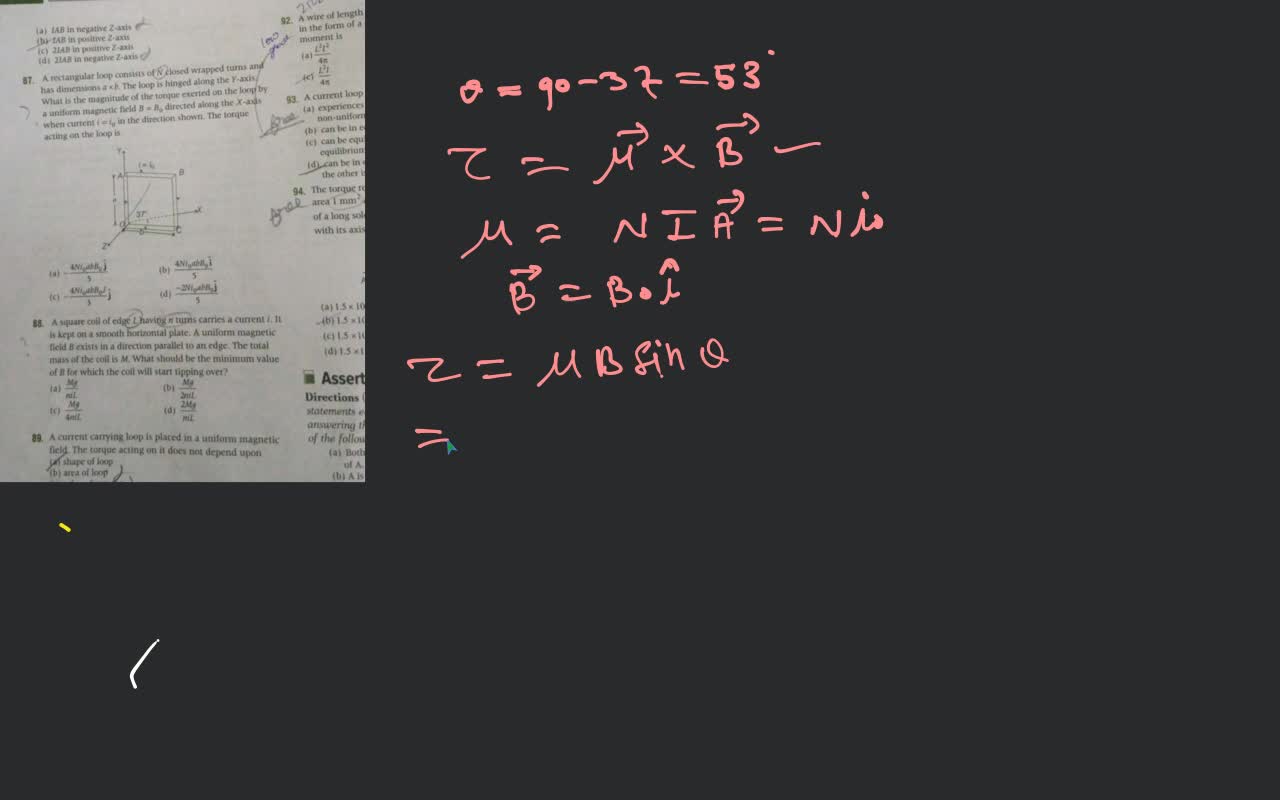 (a) IAB in negative Z-axis
(b) IAB in positive Z-axis
(c) 2IAB in positive Z-axis
(d) 2IAB in negative Z-axis
87. A rectangular loop consists of N closed wrapped turns and
has dimensions a × b. The loop is hinged along the Y-axis.
What is the magnitude of the torque exerted on the loop by
a uniform magnetic field B = B₀ directed along the X-axis
when current i = i₀ in the direction shown. The torque
acting on the loop is
Y
i = i₀
A
B
37°
X
C
Z
(a) -4Ni₀abB₀/5 ĵ
(b) 4Ni₀abB₀/5
88. A square coil of edge L having n turns carries a current i. It
is kept on a smooth horizontal plate. A uniform magnetic
field B exists in a direction parallel to an edge. The total
mass of the coil is M. What should be the minimum value
of B for which the coil will start tipping over?
(a) Mg/niL
(b) Mg/2niL
(c) Mg/4niL
(d) 2Mg/niL
89. A current carrying loop is placed in a uniform magnetic
field. The torque acting on it does not depend upon
(a) shape of loop
(b) area of loop
92. A wire of length
in the form of a
moment is
(a) L²I²/4π
(c) L²I/4π
93. A current loop
(a) experiences
non-uniform
(b) can be in e
(c) can be equ
equilibrium
(d) can be in
the other i
94. The torque re
area 1 mm²
of a long sol
with its axis
(a) 1.5 × 10
(b) 1.5 × 10
(c) 1.5 × 10
(d) 1.5 × 1
Assert
Directions (
statements e
answering th
of the follow
(a) Both
of A.
(b) A is
θ = 90 - 37 = 53°
τ = μ⃗ × B⃗
μ = N I A⃗ = N i₀
B⃗ = B₀ î
τ = μ B sin θ
=